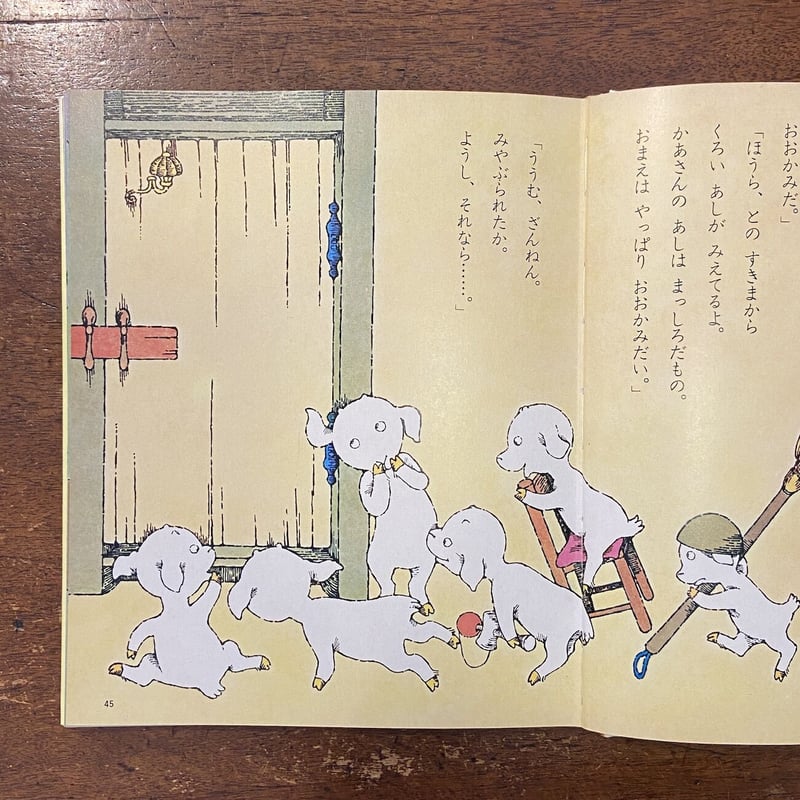 おおかみだ。」
「ほうら、との すきまから
くろい あしが みえてるよ。
かあさんの あしは まっしろだもの。
おまえは やっぱり おおかみだい。」
「ううむ、ざんねん。
みやぶられたか。
ようし、それなら……。」
45